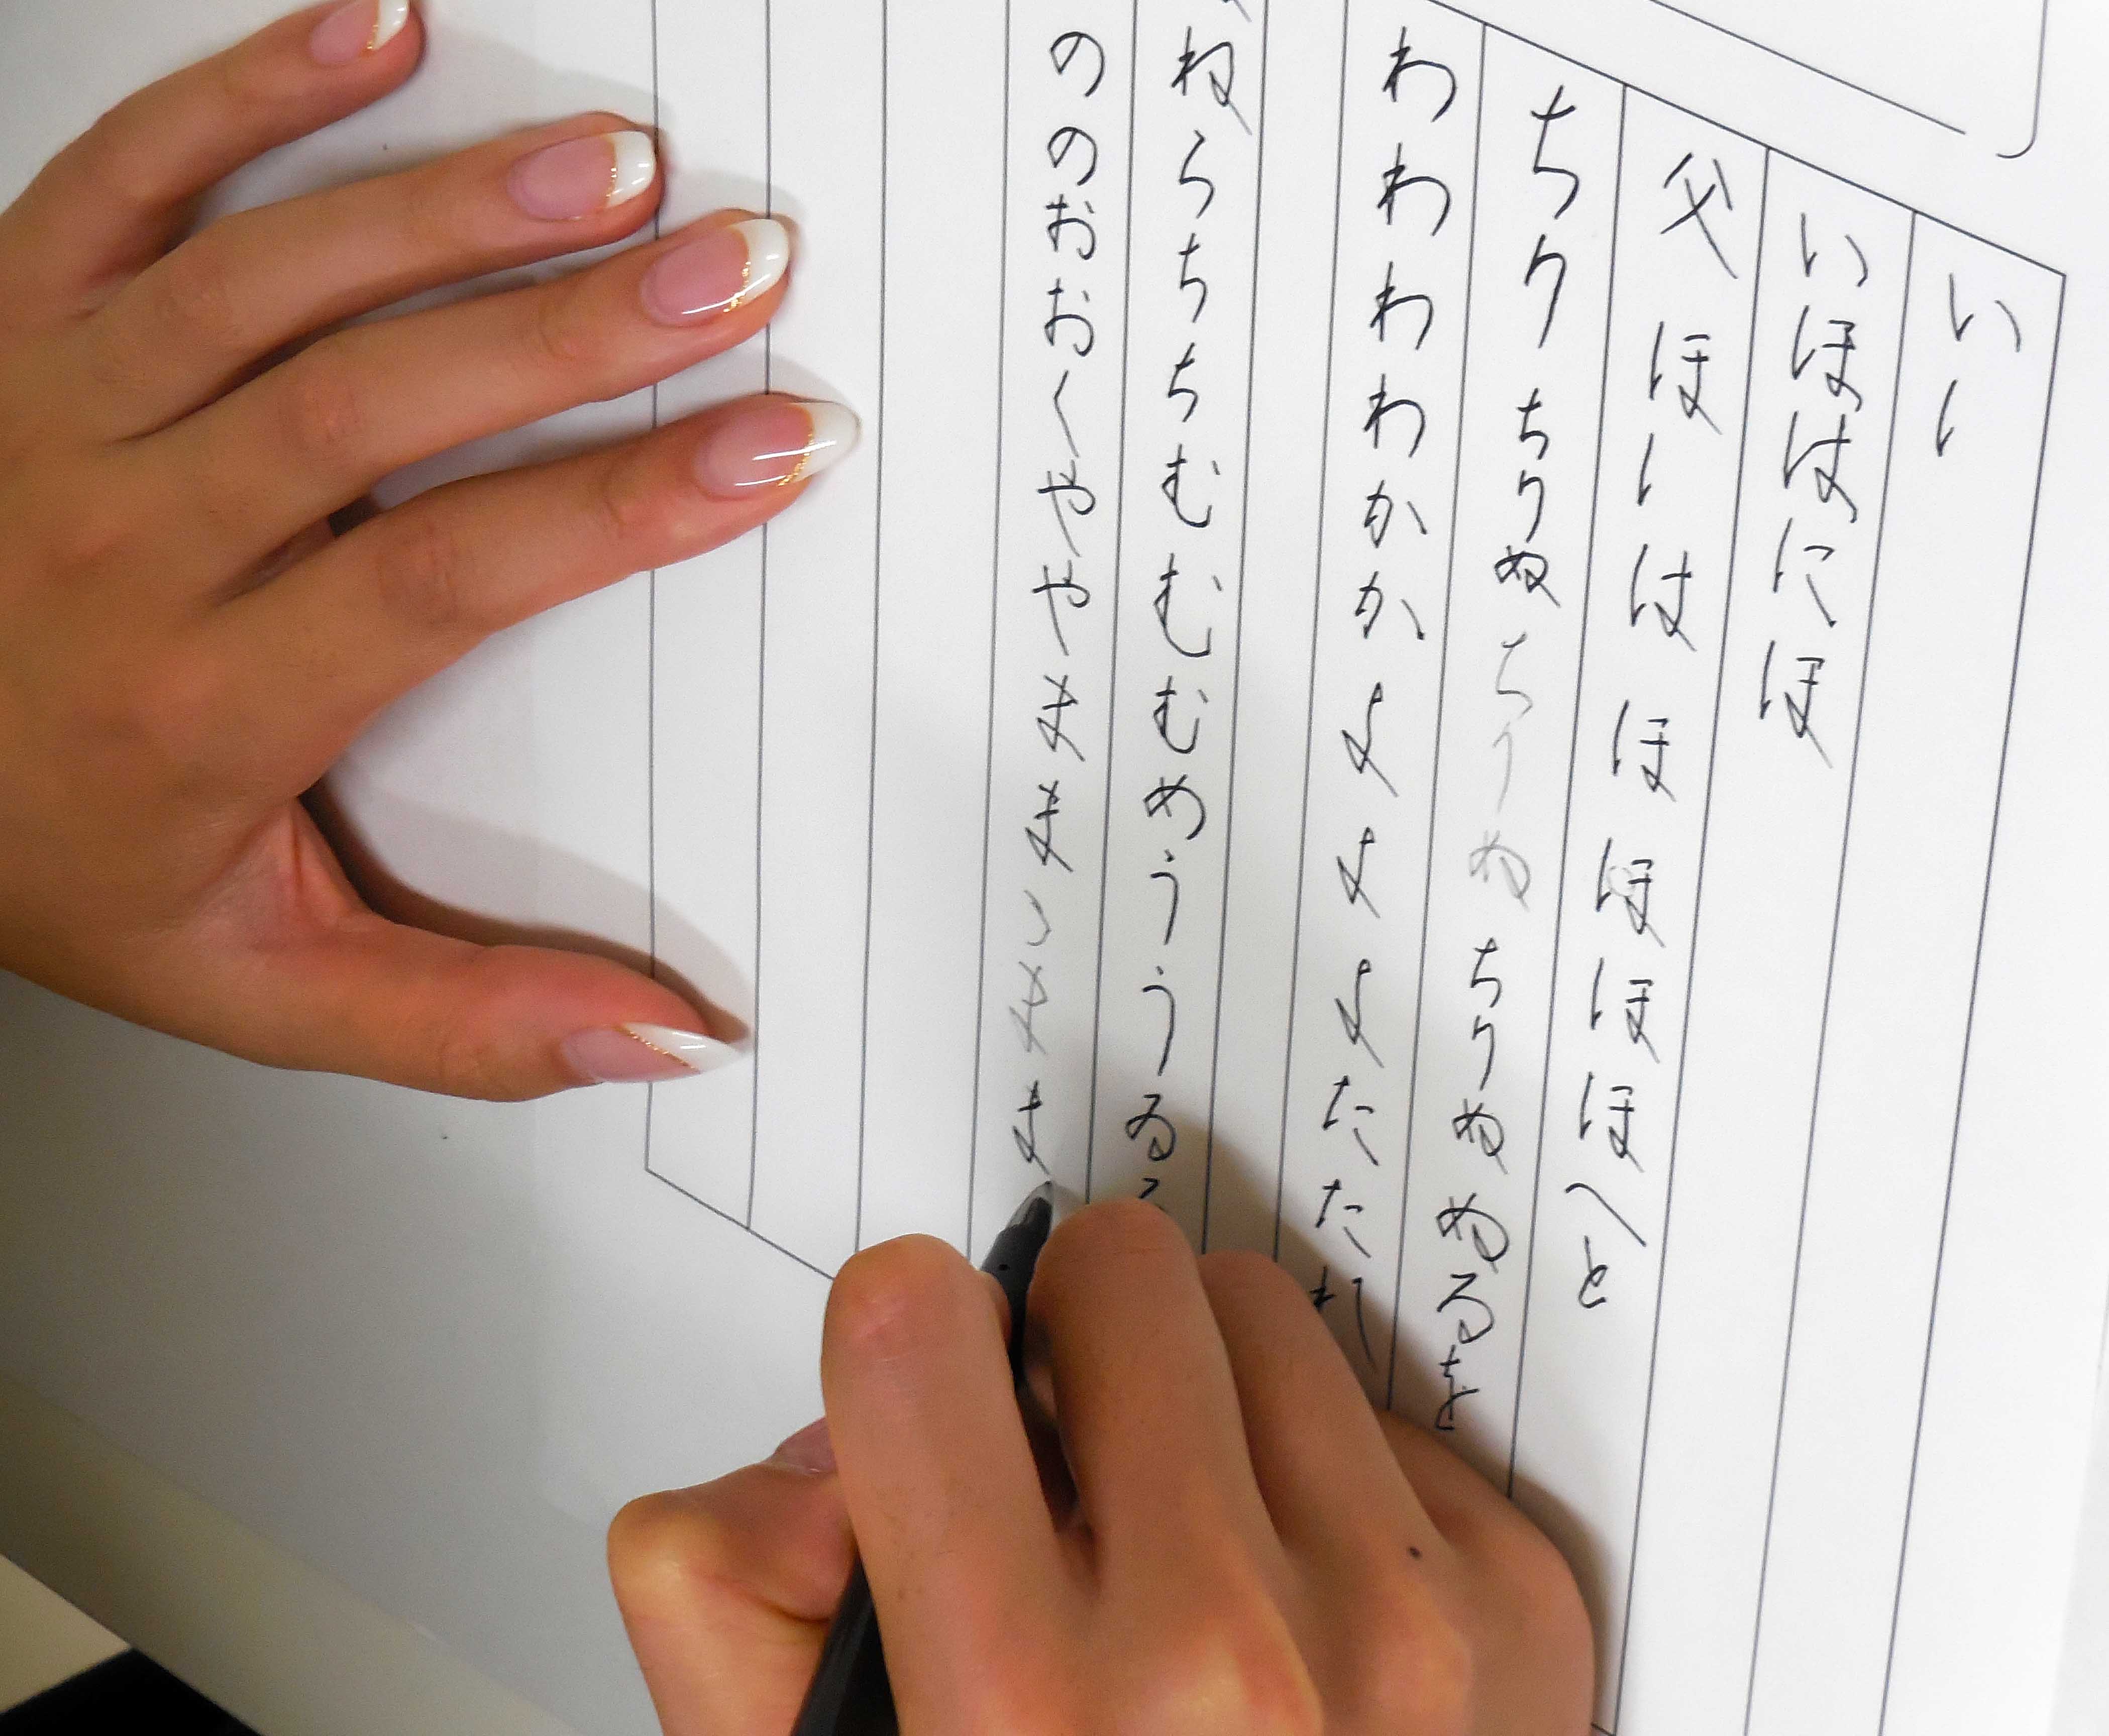 いし
いほはにほ
父ほしはほほほほへと
ちりちりぬちりぬちりぬぬるを
わわわわかかよよよたたれ
ねらちちむむむめううゐ
ののおおくややままま